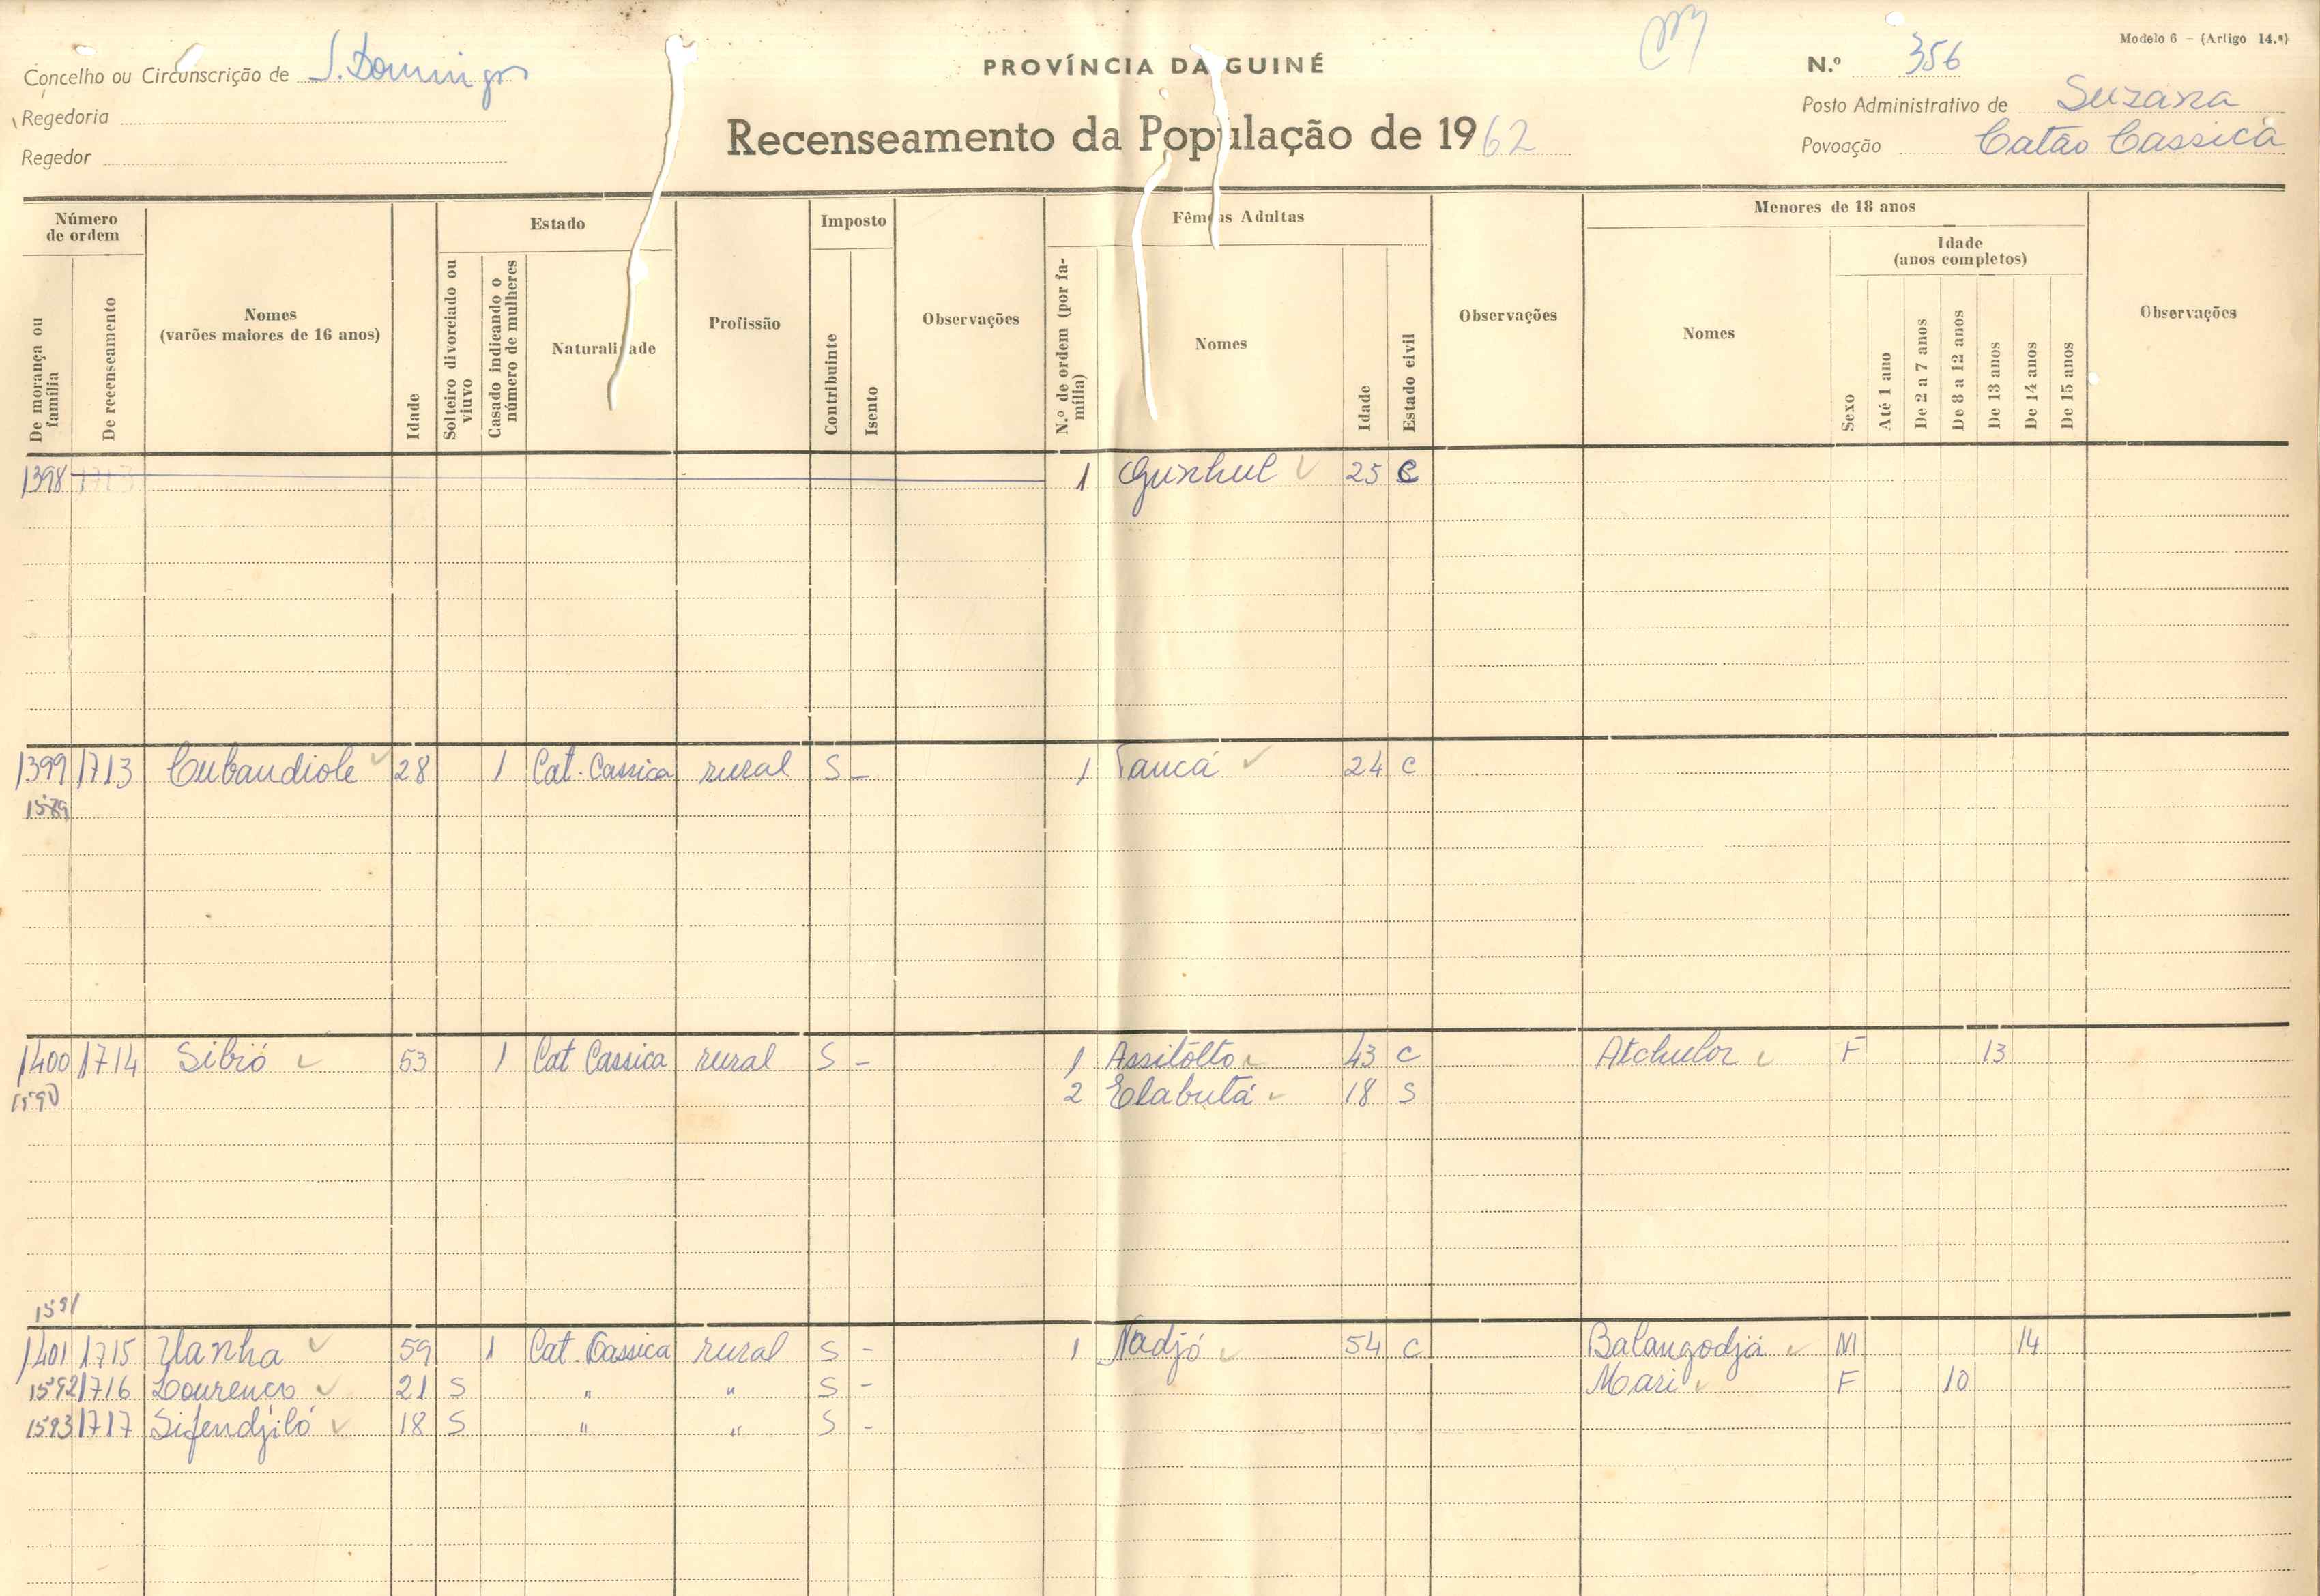 Modelo 6 - (Artigo 14.º)
Concelho ou Circunscrição de S. Domingos
PROVÍNCIA DA GUINÉ
N.º 356
Regedoria
Posto Administrativo de Suzana
Regedor
Recenseamento da População de 1962
Povoação Catão Cassica
Número de ordem
De morança ou família
De recenseamento
Nomes
(varões maiores de 16 anos)
Idade
Estado
Solteiro divorciado ou viuvo
Casado indicando o número de mulheres
Naturalidade
Profissão
Imposto
Contribuinte
Isento
Observações
Fêmeas Adultas
N.º de ordem (por família)
Nomes
Idade
Estado civil
Observações
Menores de 18 anos
Nomes
Idade
(anos completos)
Sexo
Até 1 ano
De 2 a 7 anos
De 8 a 12 anos
De 13 anos
De 14 anos
De 15 anos
Observações
1398 1713 1 Gunhul 25 C
1399 1713 Cubaudiole 28 1 Cat. Cassica rural S - 1 Taucá 24 C
1589
1400 1714 Sibió 53 1 Cat Cassica rural S - 1 Assitôlto 43 C Atchulor F 13
1590 2 Elabutá 18 S
1591
1401 1715 Ylanha 59 1 Cat. Cassica rural S - 1 Nadjó 54 C Balangodjá M 14
1592 1716 Lourenço 21 S " " S - Mari F 10
1593 1717 Sifendjiló 18 S " " S -